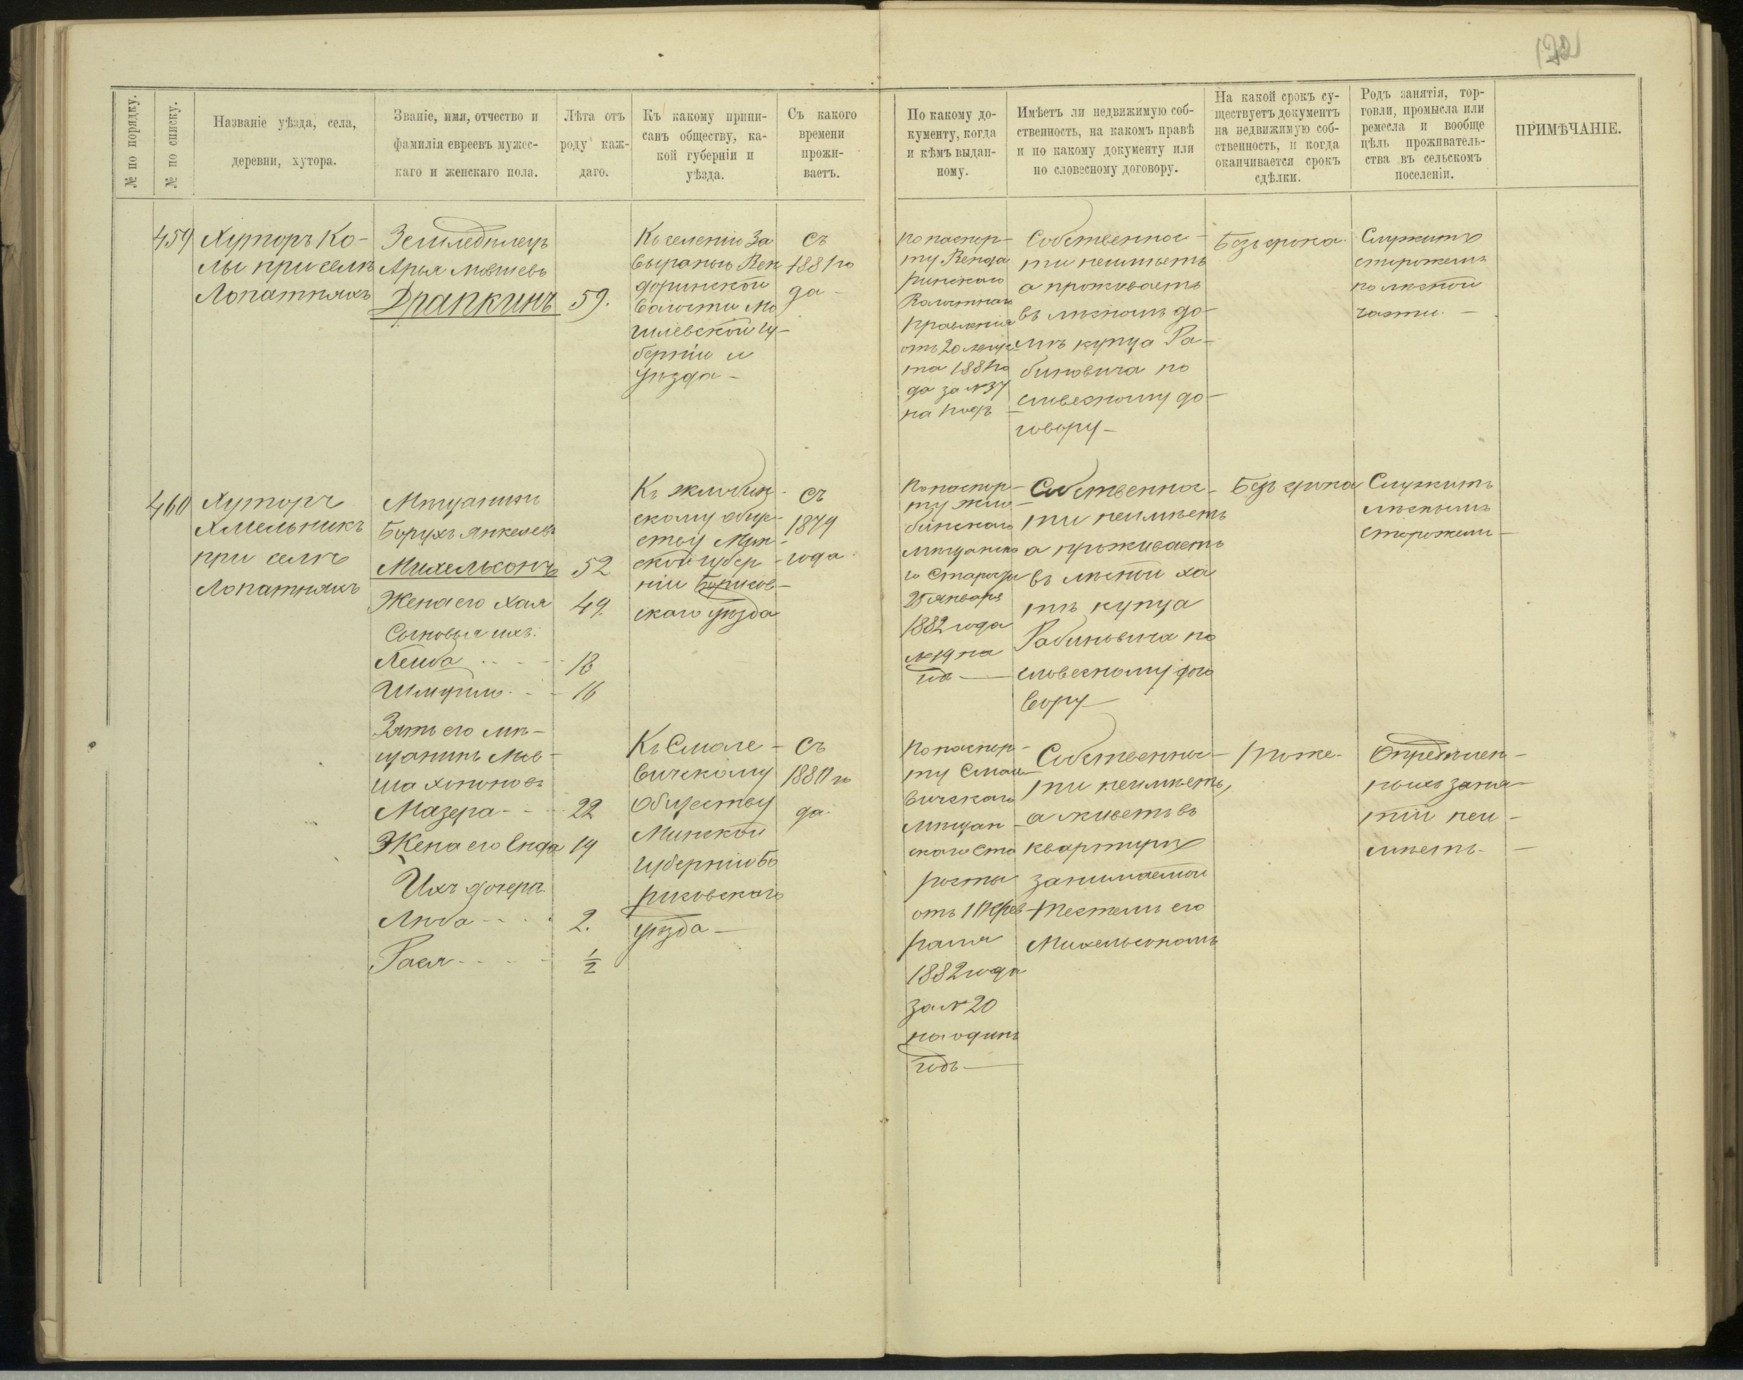 182
№ по порядку.
№ по списку.
Названіе уѣзда, села,
деревни, хутора.
Званіе, имя, отчество и
фамилія евреевъ мужес-
каго и женскаго пола.
Лѣта отъ
роду каж-
даго.
Къ какому припи-
санъ обществу, ка-
кой губерніи и
уѣзда.
Съ какого
времени
прожи-
ваетъ.
По какому до-
кументу, когда
и кѣмъ выдан-
ному.
Имѣетъ ли недвижимую соб-
ственность, на какомъ правѣ
и по какому документу или
по словесному договору.
На какой срокъ су-
ществуетъ документъ
на недвижимую соб-
ственность, и когда
оканчивается срокъ
сдѣлки.
Родъ занятія, тор-
говли, промысла или
ремесла и вообще
цѣль проживатель-
ства въ сельскомъ
поселеніи.
ПРИМѢЧАНІЕ.
459
Хуторъ Ко-
лы при селѣ
Лопатняхъ
Земледѣлецъ
Арья Мовшевъ
Драпкинъ
59.
Къ селенію За
Вен
доринской
волости Мо
гилевской гу-
берніи и
уѣзда-
Съ
1881 го
да-
по паспор-
ту Вендо
ринскаго
Волостнаго
Правленія
отъ 20
та 1881 го
да за №34
на годъ
Собственнос-
ти неимѣетъ
а проживаетъ
въ лѣсномъ до-
мѣ купца Ра-
биновича по
словесному до-
говору-
Безъ срока
Служитъ
сторожемъ
по лѣсной
части. -
460
Хуторъ
Хмельникъ
при селѣ
Лопатняхъ
Мѣщанинъ
Борухъ Янкелевъ
Михельсонъ
52
Жена его Хая
49.
Сыновья ихъ:
Лейба
18
Шмуйло
16
Къ Жлобин-
скому обще-
ству Мин-
ской губер-
ніи Борисов-
скаго уѣзда
Съ
1879
года
По паспор-
ту Жло-
бинскаго
мѣщанска
го Старосты
25 Января
1882 года
№19 на
годъ
Собственнос-
ти неимѣетъ
а проживаетъ
въ лѣсной ха
тѣ купца
Рабиновича по
словесному дого
вору-
Безъ срока
Служитъ
лѣснымъ
сторожемъ-
Зять его мѣ-
щанинъ Мов-
ша Хононовъ
Мазера
22
Жена его Енфа
19
Ихъ дочери
Люба
2.
Рася
½
Къ Смоле-
вичскому
Обществу
Минской
губерніи Бо
рисовскаго
уѣзда-
Съ
1880 го
да-
По паспор-
ту Смоле-
вичскаго
мѣщан-
скаго Ста
росты
отъ 11 Фев-
раля
1882 года
за №20
на одинъ
годъ
Собственнос-
ти неимѣетъ,
а живетъ въ
квартиры
занимаемой
тестемъ его
Михельсономъ
тоже-
Опредѣлен-
ныхъ заня-
тій неи-
мѣетъ.-